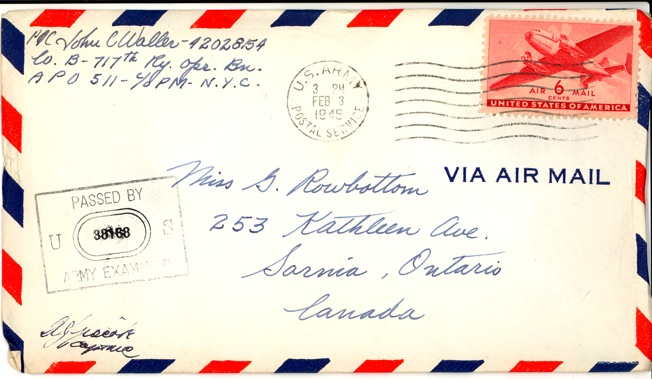 Pfc John C Waller - 42028154
Co. B - 717th Ry. Opr. Bn.
A P O 511 - c/o PM - N.Y.C.
U.S. ARMY
3 PM
FEB 3
1945
POSTAL SERVICE
AIR 6 MAIL
CENTS
UNITED STATES OF AMERICA
VIA AIR MAIL
Miss G. Rowbottom
253 Kathleen Ave.
Sarnia, Ontario
Canada
PASSED BY
U 38168 S
ARMY EXAMINER